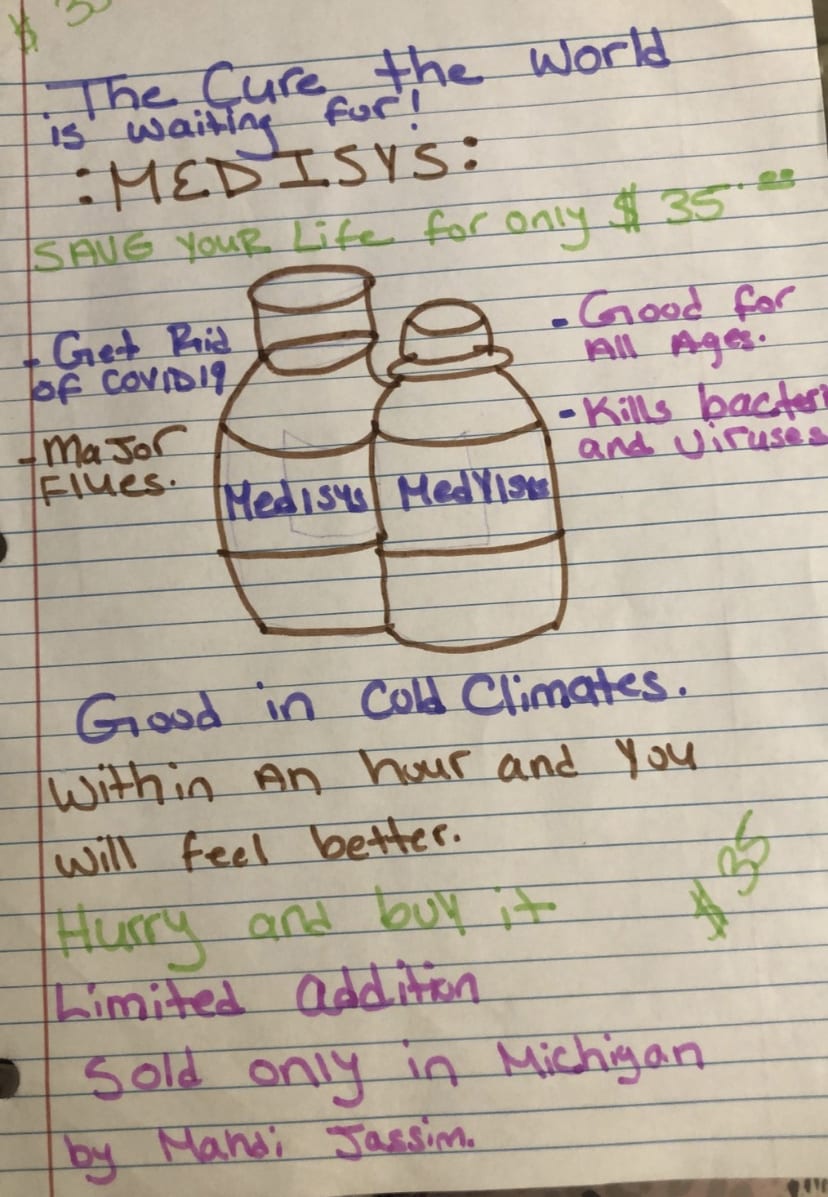 $ 35
The Cure the World
is waiting for!
:MEDISYS:
SAVE YOUR Life for only $ 35.00
- Get Rid
of COVID19
- Major
Flues.
- Good for
All Ages.
- Kills bacteri
and viruses
Medisys
Good in Cold Climates.
Within An hour and you
will feel better.
Hurry and buy it
$ 35
Limited addition
Sold only in Michigan
by Jassim.